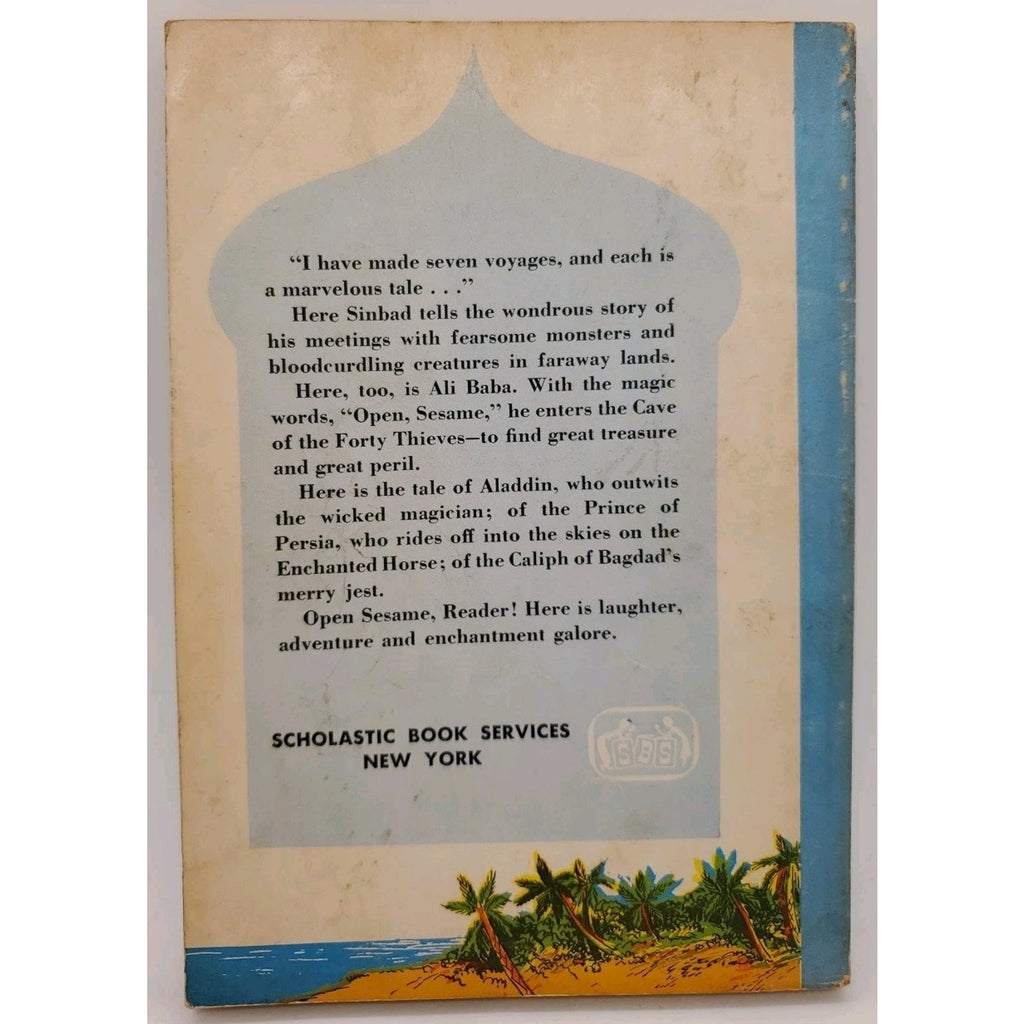 “I have made seven voyages, and each is
a marvelous tale . . .”
Here Sinbad tells the wondrous story of
his meetings with fearsome monsters and
bloodcurdling creatures in faraway lands.
Here, too, is Ali Baba. With the magic
words, “Open, Sesame,” he enters the Cave
of the Forty Thieves—to find great treasure
and great peril.
Here is the tale of Aladdin, who outwits
the wicked magician; of the Prince of
Persia, who rides off into the skies on the
Enchanted Horse; of the Caliph of Bagdad’s
merry jest.
Open Sesame, Reader! Here is laughter,
adventure and enchantment galore.
SCHOLASTIC BOOK SERVICES
NEW YORK
SBS